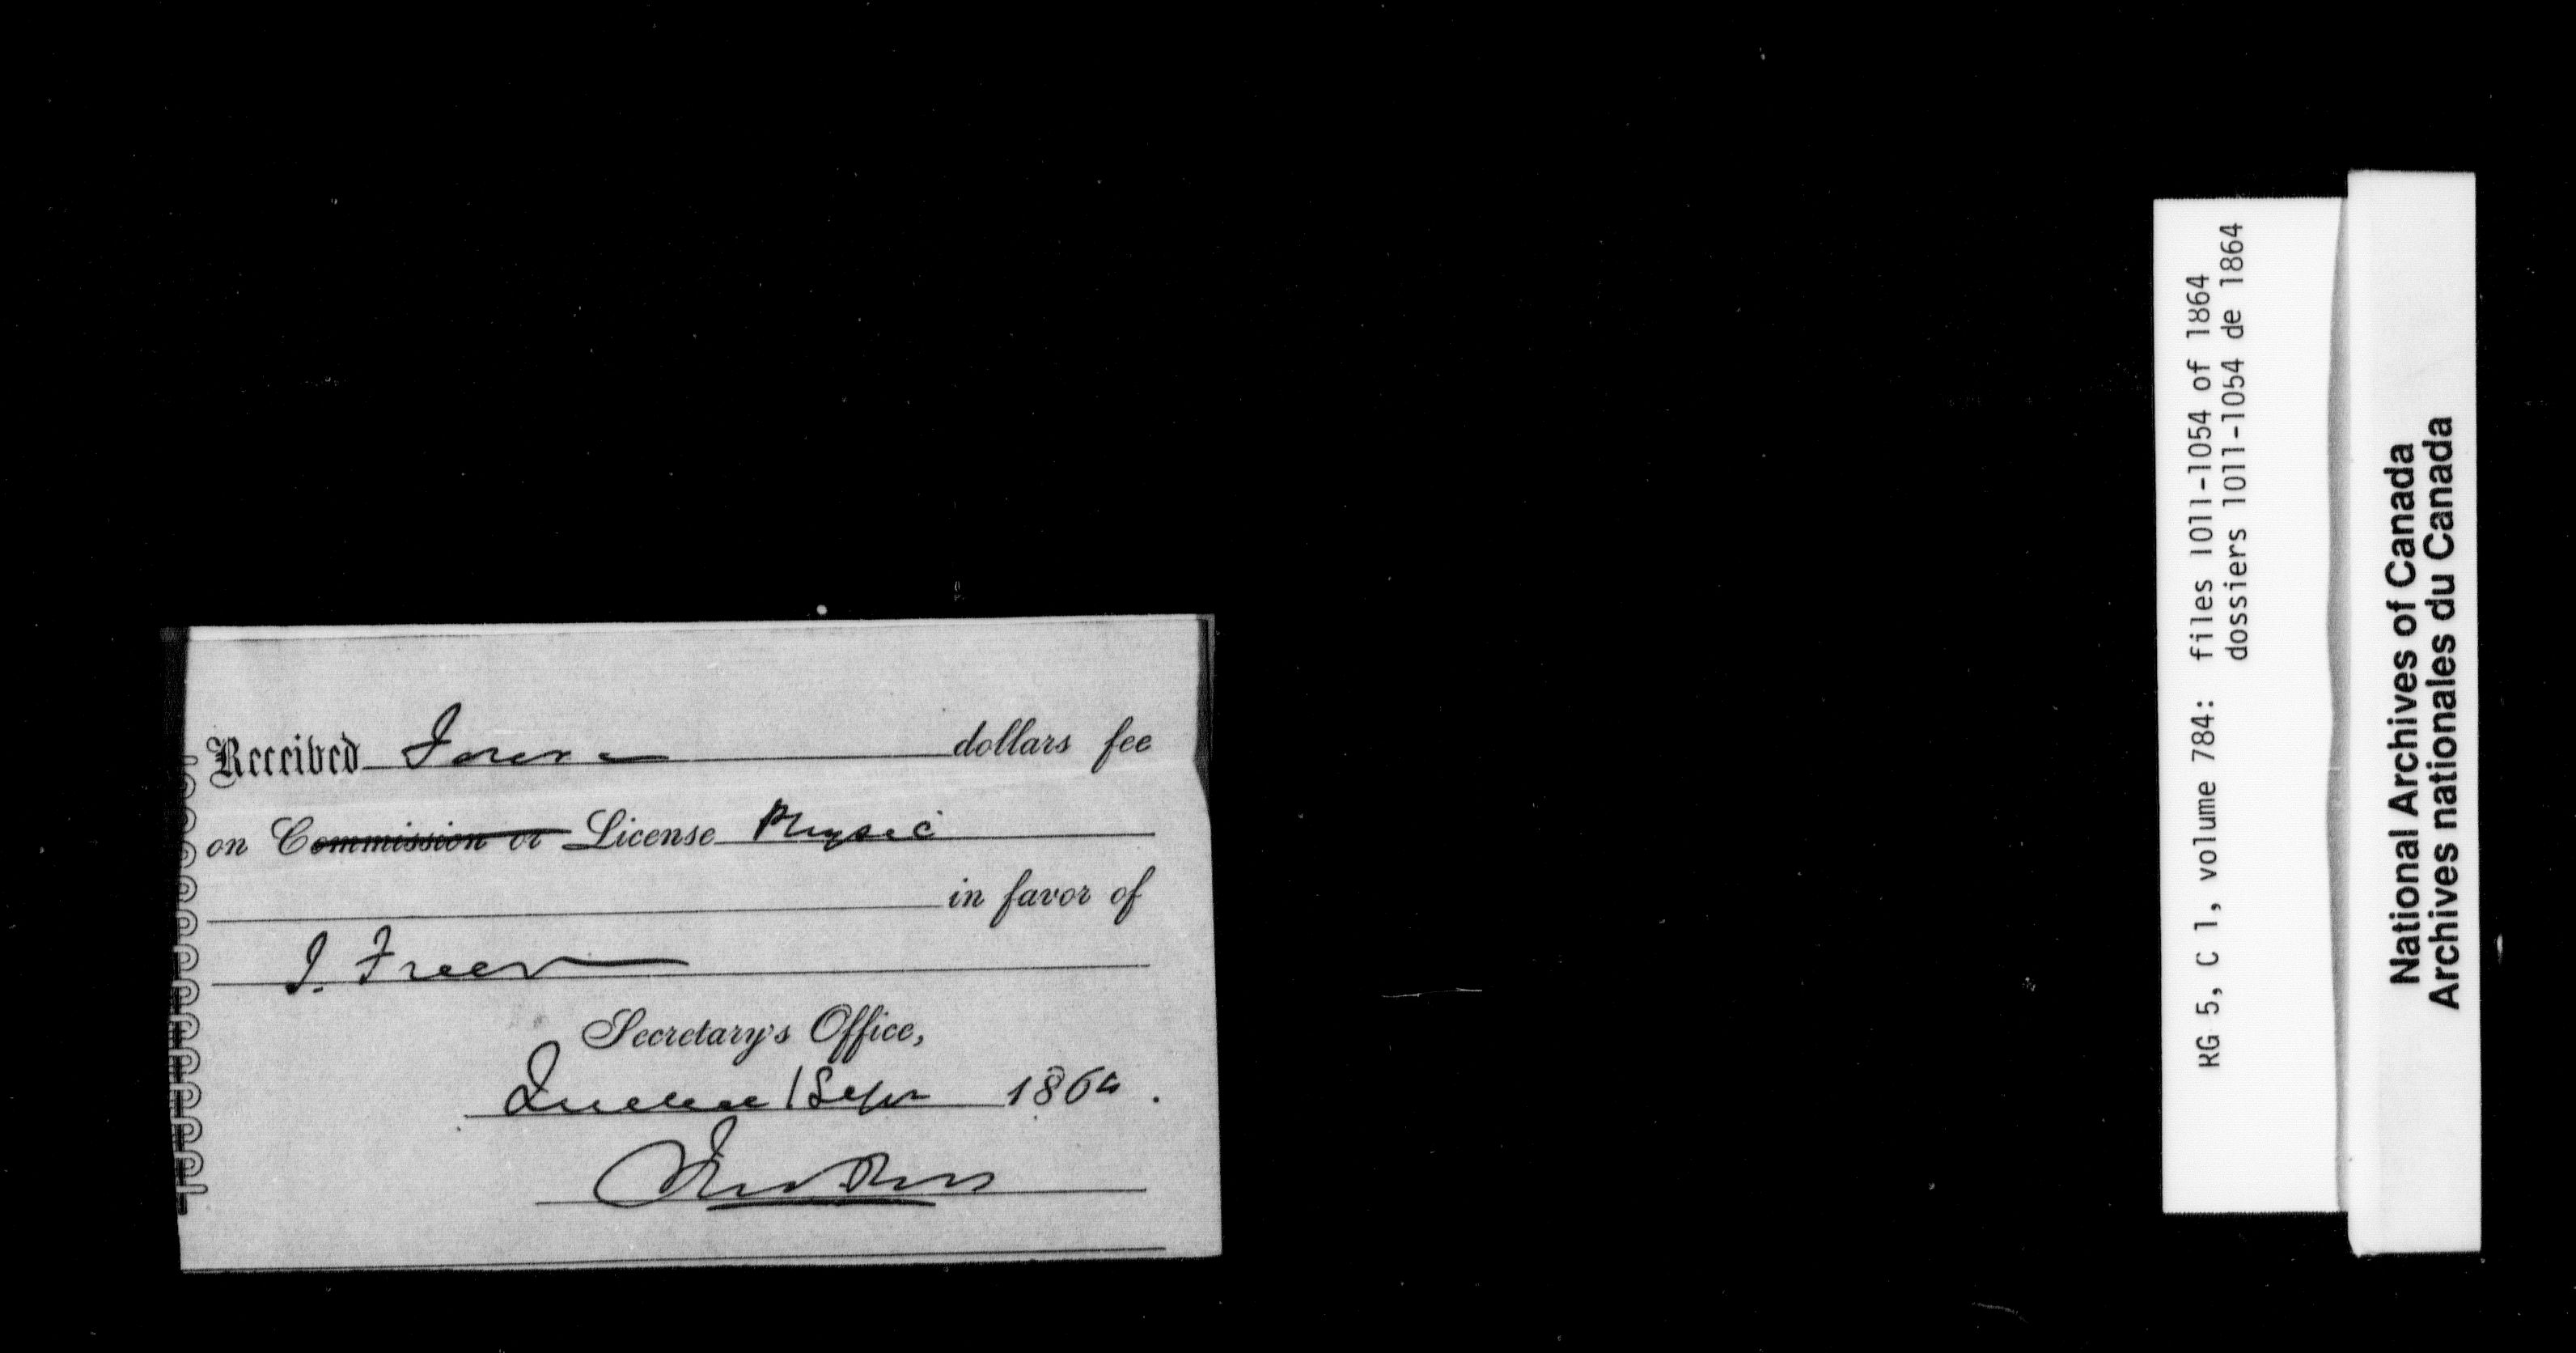 Received dollars fee
on Commission or License Physic
in favor of
J. Freer
Secretary's Office,
Quebec 1 Sept 1864.
RG 5, C 1, volume 784: files 1011-1054 of 1864
dossiers 1011-1054 de 1864
National Archives of Canada
Archives nationales du Canada